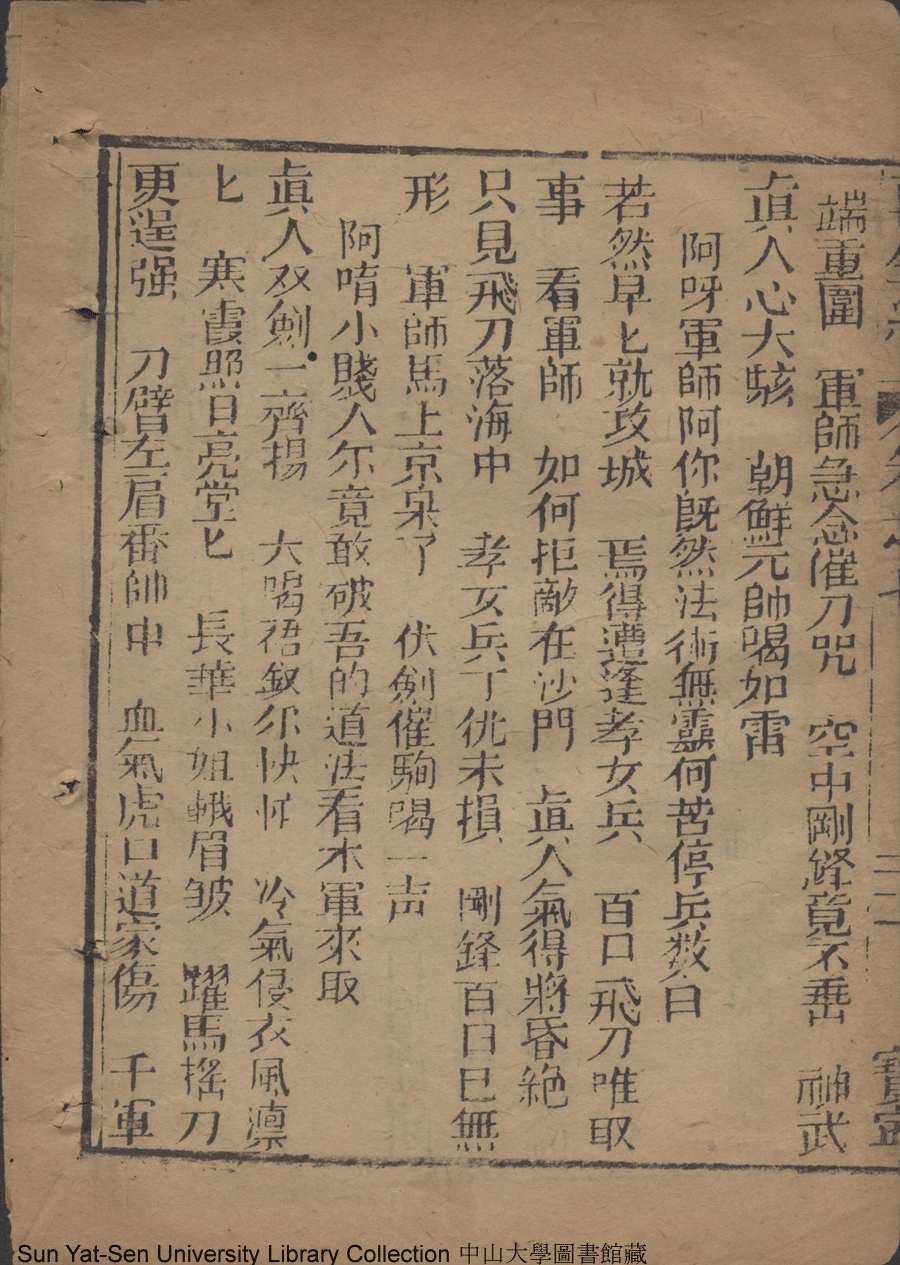 端重圍　軍師急念催刀咒　空中剛鋒竟不垂　神武
眞人心大駭　朝鮮元帥喝如雷
阿呀軍師阿你既然法術無靈何苦停兵数日
若然早匕就攻城　焉得遭逢孝女兵　百口飛刀唯取
事　看軍師　如何拒敵在沙門　眞人氣得將昏絶
只見飛刀落海中　孝女兵丁侊未損　剛鋒百口已無
形　軍師馬上京呆了　伏劍催駒喝一声
阿唷小賤人尔竟敢破吾的道法看本軍來取
眞人双劍一齊揚　大喝裙釵尔快忙　冷氣侵衣風凛
匕　寒霞照日亮堂匕　長華小姐蛾眉皱　躍馬摇刀
更逞强　刀劈左肩番帥中　血氣虎口道家傷　千軍
Sun Yat-Sen University Library Collection 中山大學圖書館藏